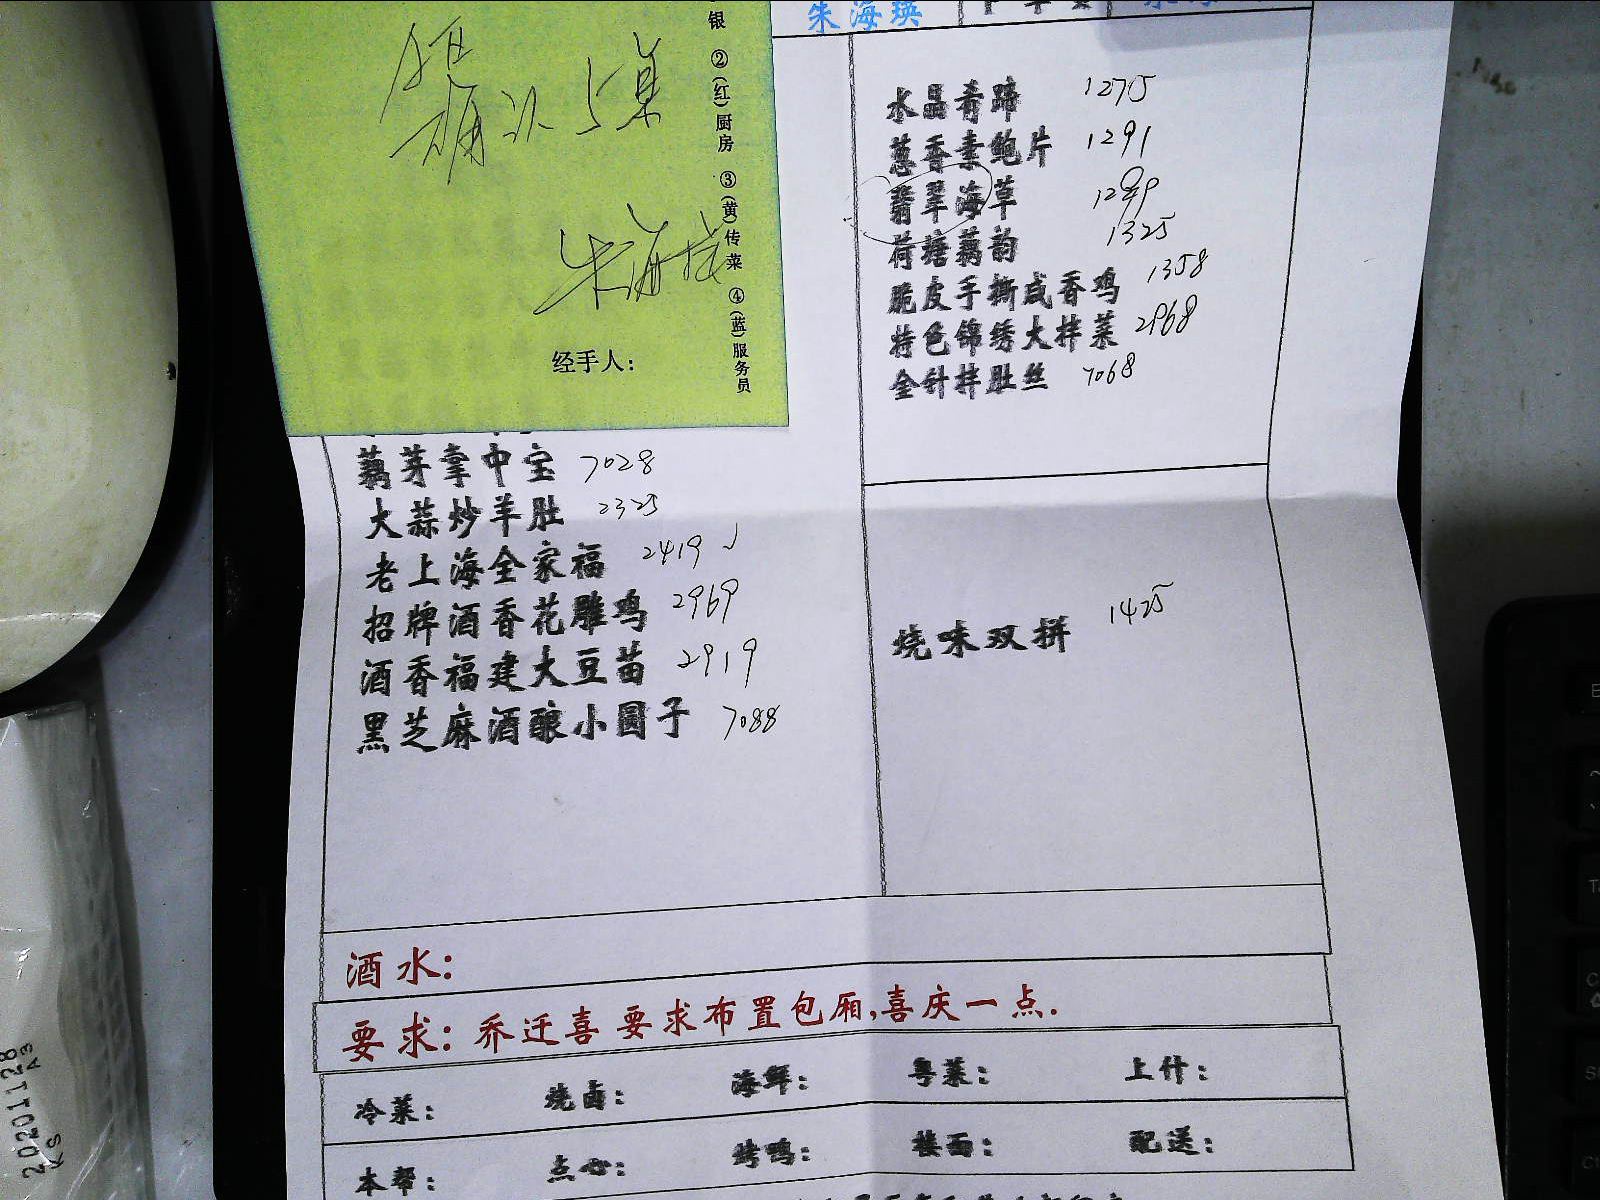 朱海瑛
银 ②(红)厨房 ③(黄)传菜 ④(蓝)服务员
确认5桌
朱海
经手人：
水晶肴蹄 1275
葱香素鲍片 1291
翡翠海草
荷塘藕韵 1325
脆皮手撕咸香鸡 1358
特色锦绣大拌菜 2968
金针拌肚丝 7068
藕芽拿中宝 7028
大蒜炒羊肚 2325
老上海全家福 2419 √
招牌酒香花雕鸡 2969
酒香福建大豆苗 2919
黑芝麻酒酿小圆子 7088
烧味双拼 1425
酒水：
要求：乔迁喜 要求布置包厢,喜庆一点.
冷菜： 烧卤： 海鲜： 粤菜： 上什：
本帮： 点心： 烤鸭： 接面： 配送：
20201128